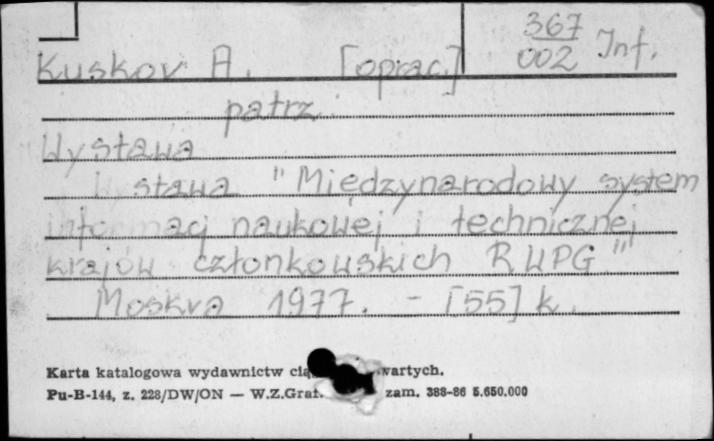 367
Kuskov A. [oprac.] 002 Inf.
patrz
Wystawa
Wystawa "Międzynarodowy system
informacj naukowej i technicznej
krajów członkowskich RWPG"
Moskva 1977. - [55] k.
Karta katalogowa wydawnictw
Pu-B-144, z. 228/DW/ON — W.Z.Graf. zam. 388-86 5.650.000